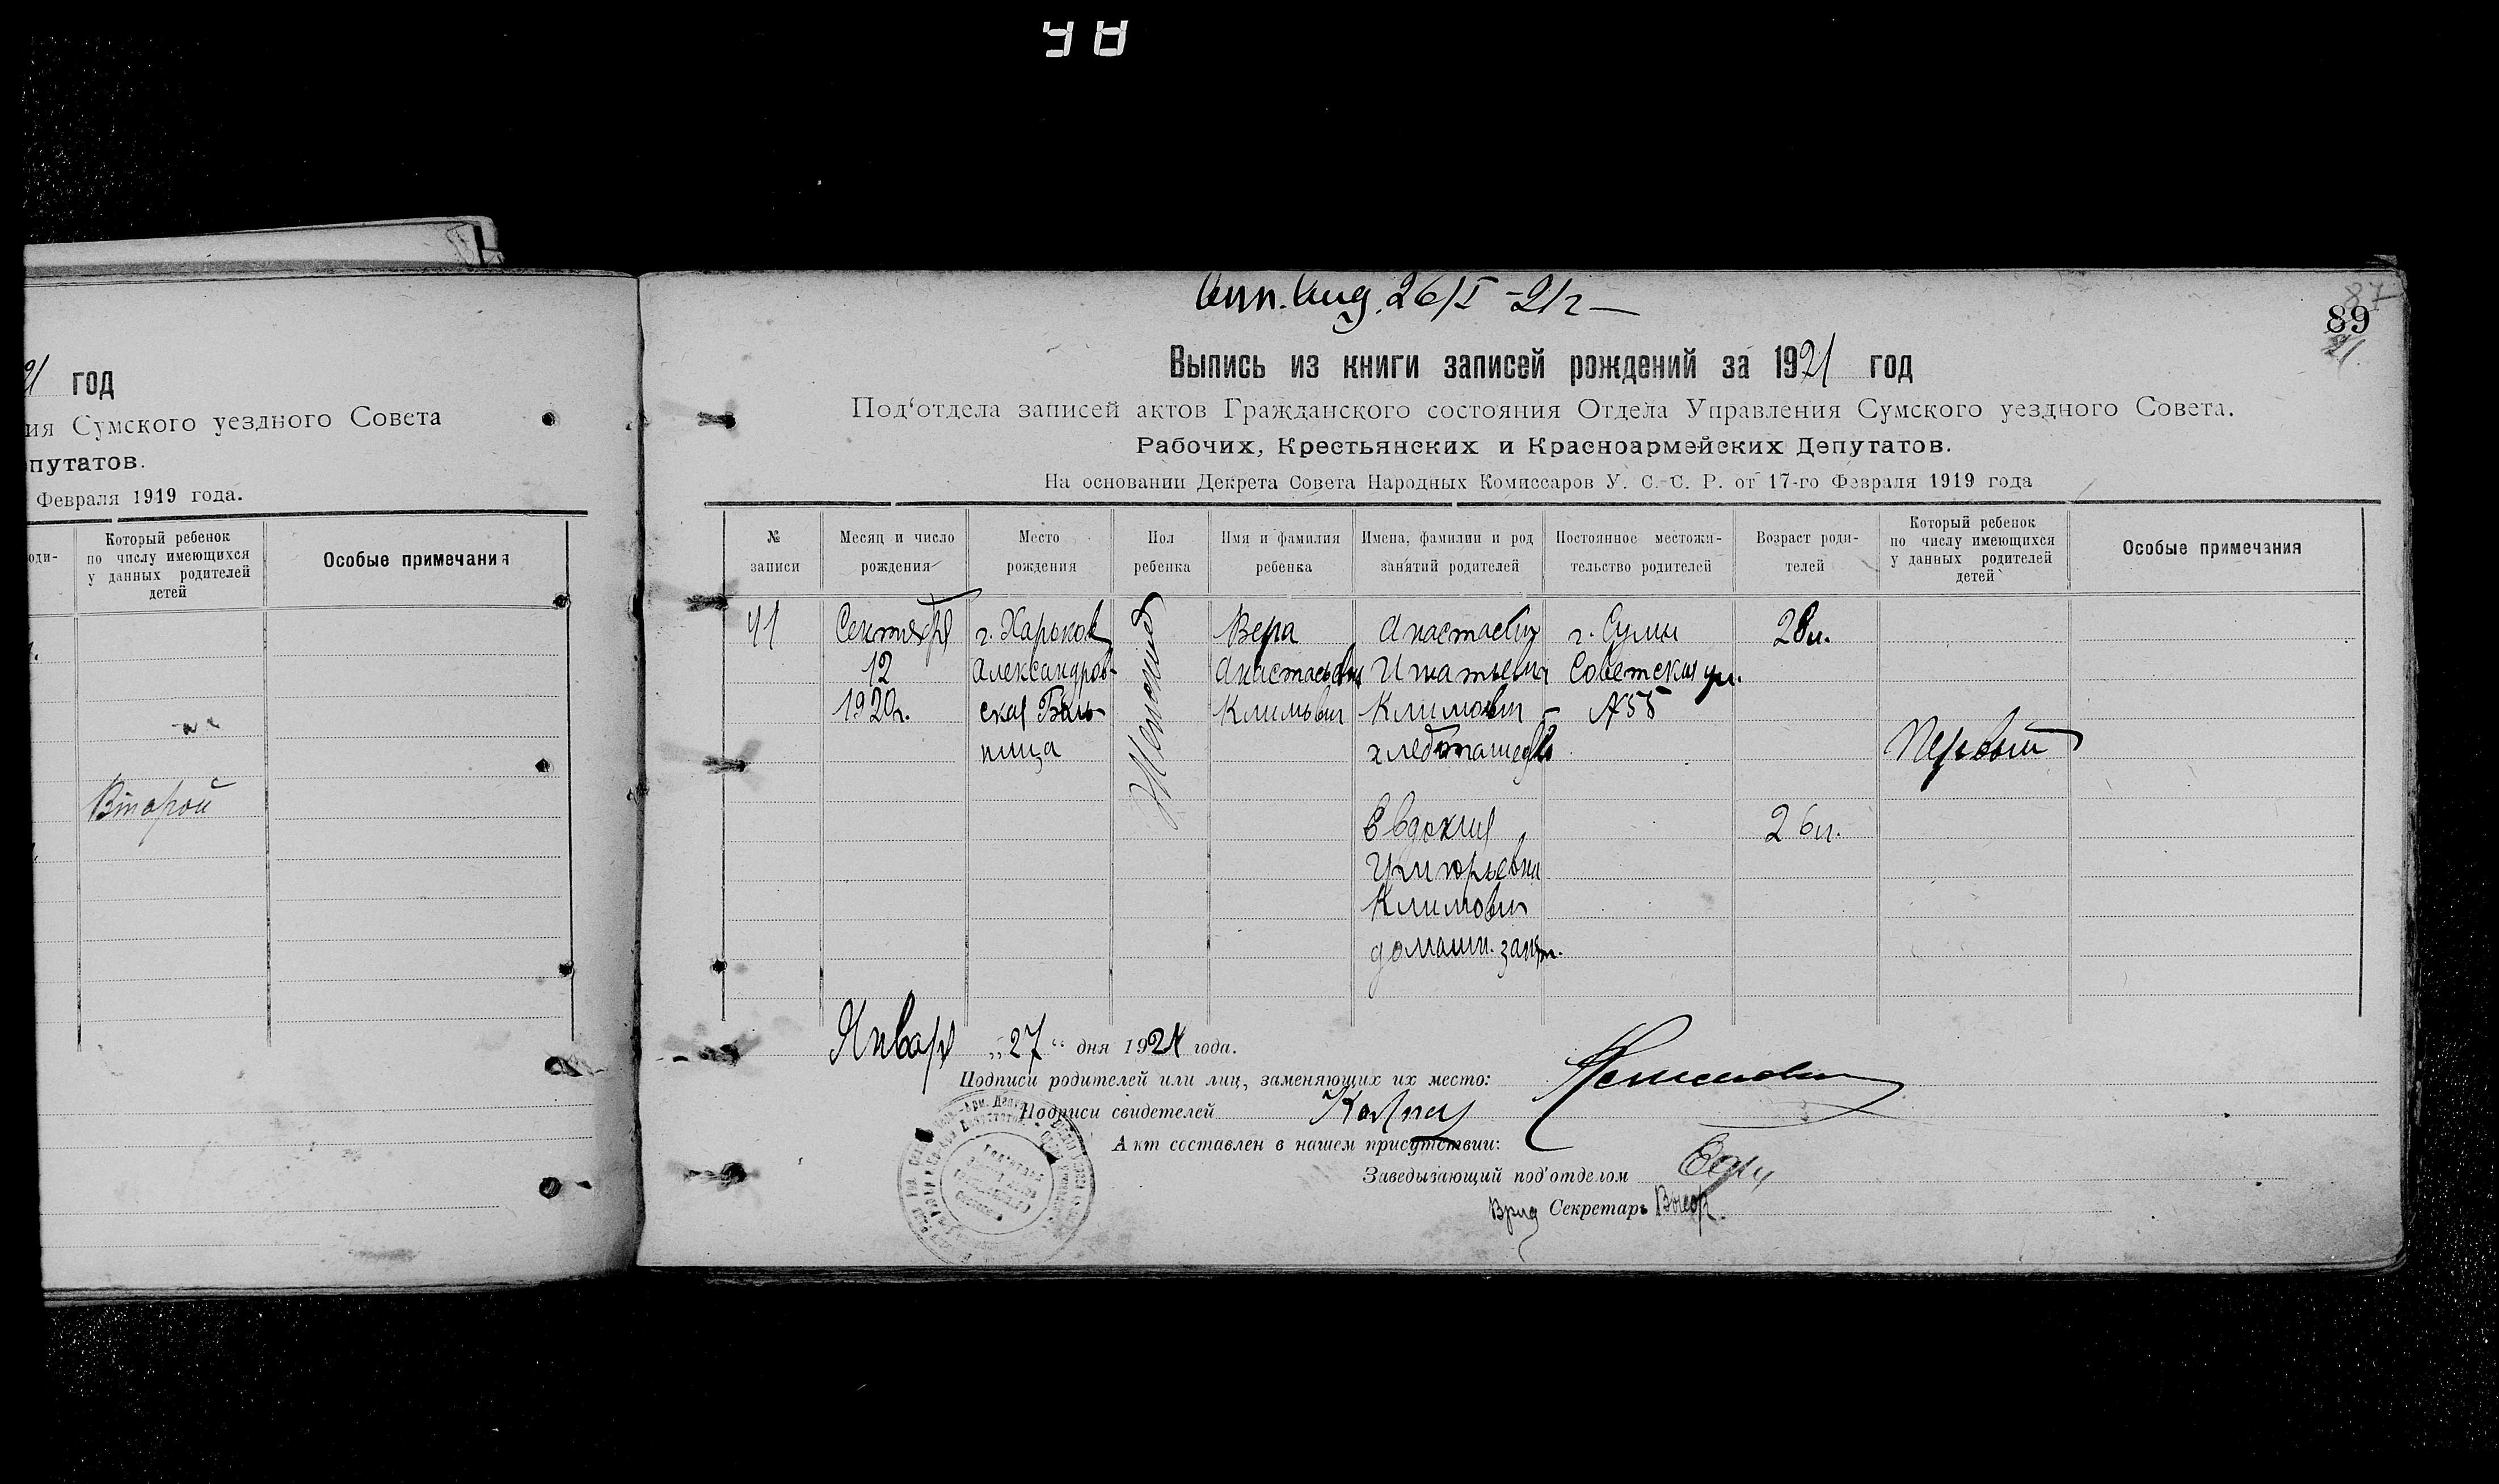 48
21 год
ия Сумского уездного Совета
путатов.
Февраля 1919 года.
оди-
Который ребенок
по числу имеющихся
у данных родителей
детей
Особые примечания
Второй
26/I - 21 г
87
89
21
Выпись из книги записей рождений за 1921 год
Под‘отдела записей актов Гражданского состояния Отдела Управления Сумского уездного Совета.
Рабочих, Крестьянских и Красноармейских Депутатов.
На основании Декрета Совета Народных Комиссаров У. С.-С. Р. от 17-го Февраля 1919 года
№
записи
Месяц и число
рождения
Место
рождения
Пол
ребенка
Имя и фамилия
ребенка
Имена, фамилии и род
занятий родителей
Постоянное местожи-
тельство родителей
Возраст роди-
телей
Который ребенок
по числу имеющихся
у данных родителей
детей
Особые примечания
41
Сентября
12
1920 г.
г. Харьков
Александров-
ская Боль-
ница
Женский
Вера
Климович
Игнатьевич
Климович -
г. Сумы
Советская ул.
№ 55
28 л.
Первый
Евдокия
Григорьевна
Климович
домашн. занят.
26 л.
Января „27“ дня 1921 года.
Подписи родителей или лиц, заменяющих их место:
Подписи свидетелей
Акт составлен в нашем присутствии:
Заведывающий под‘отделом
Врид Секретарь